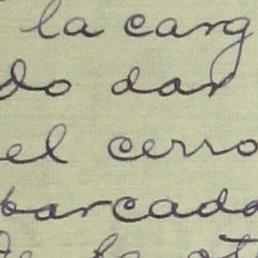 la carg
do dar
el cerro
barcado
de la ot